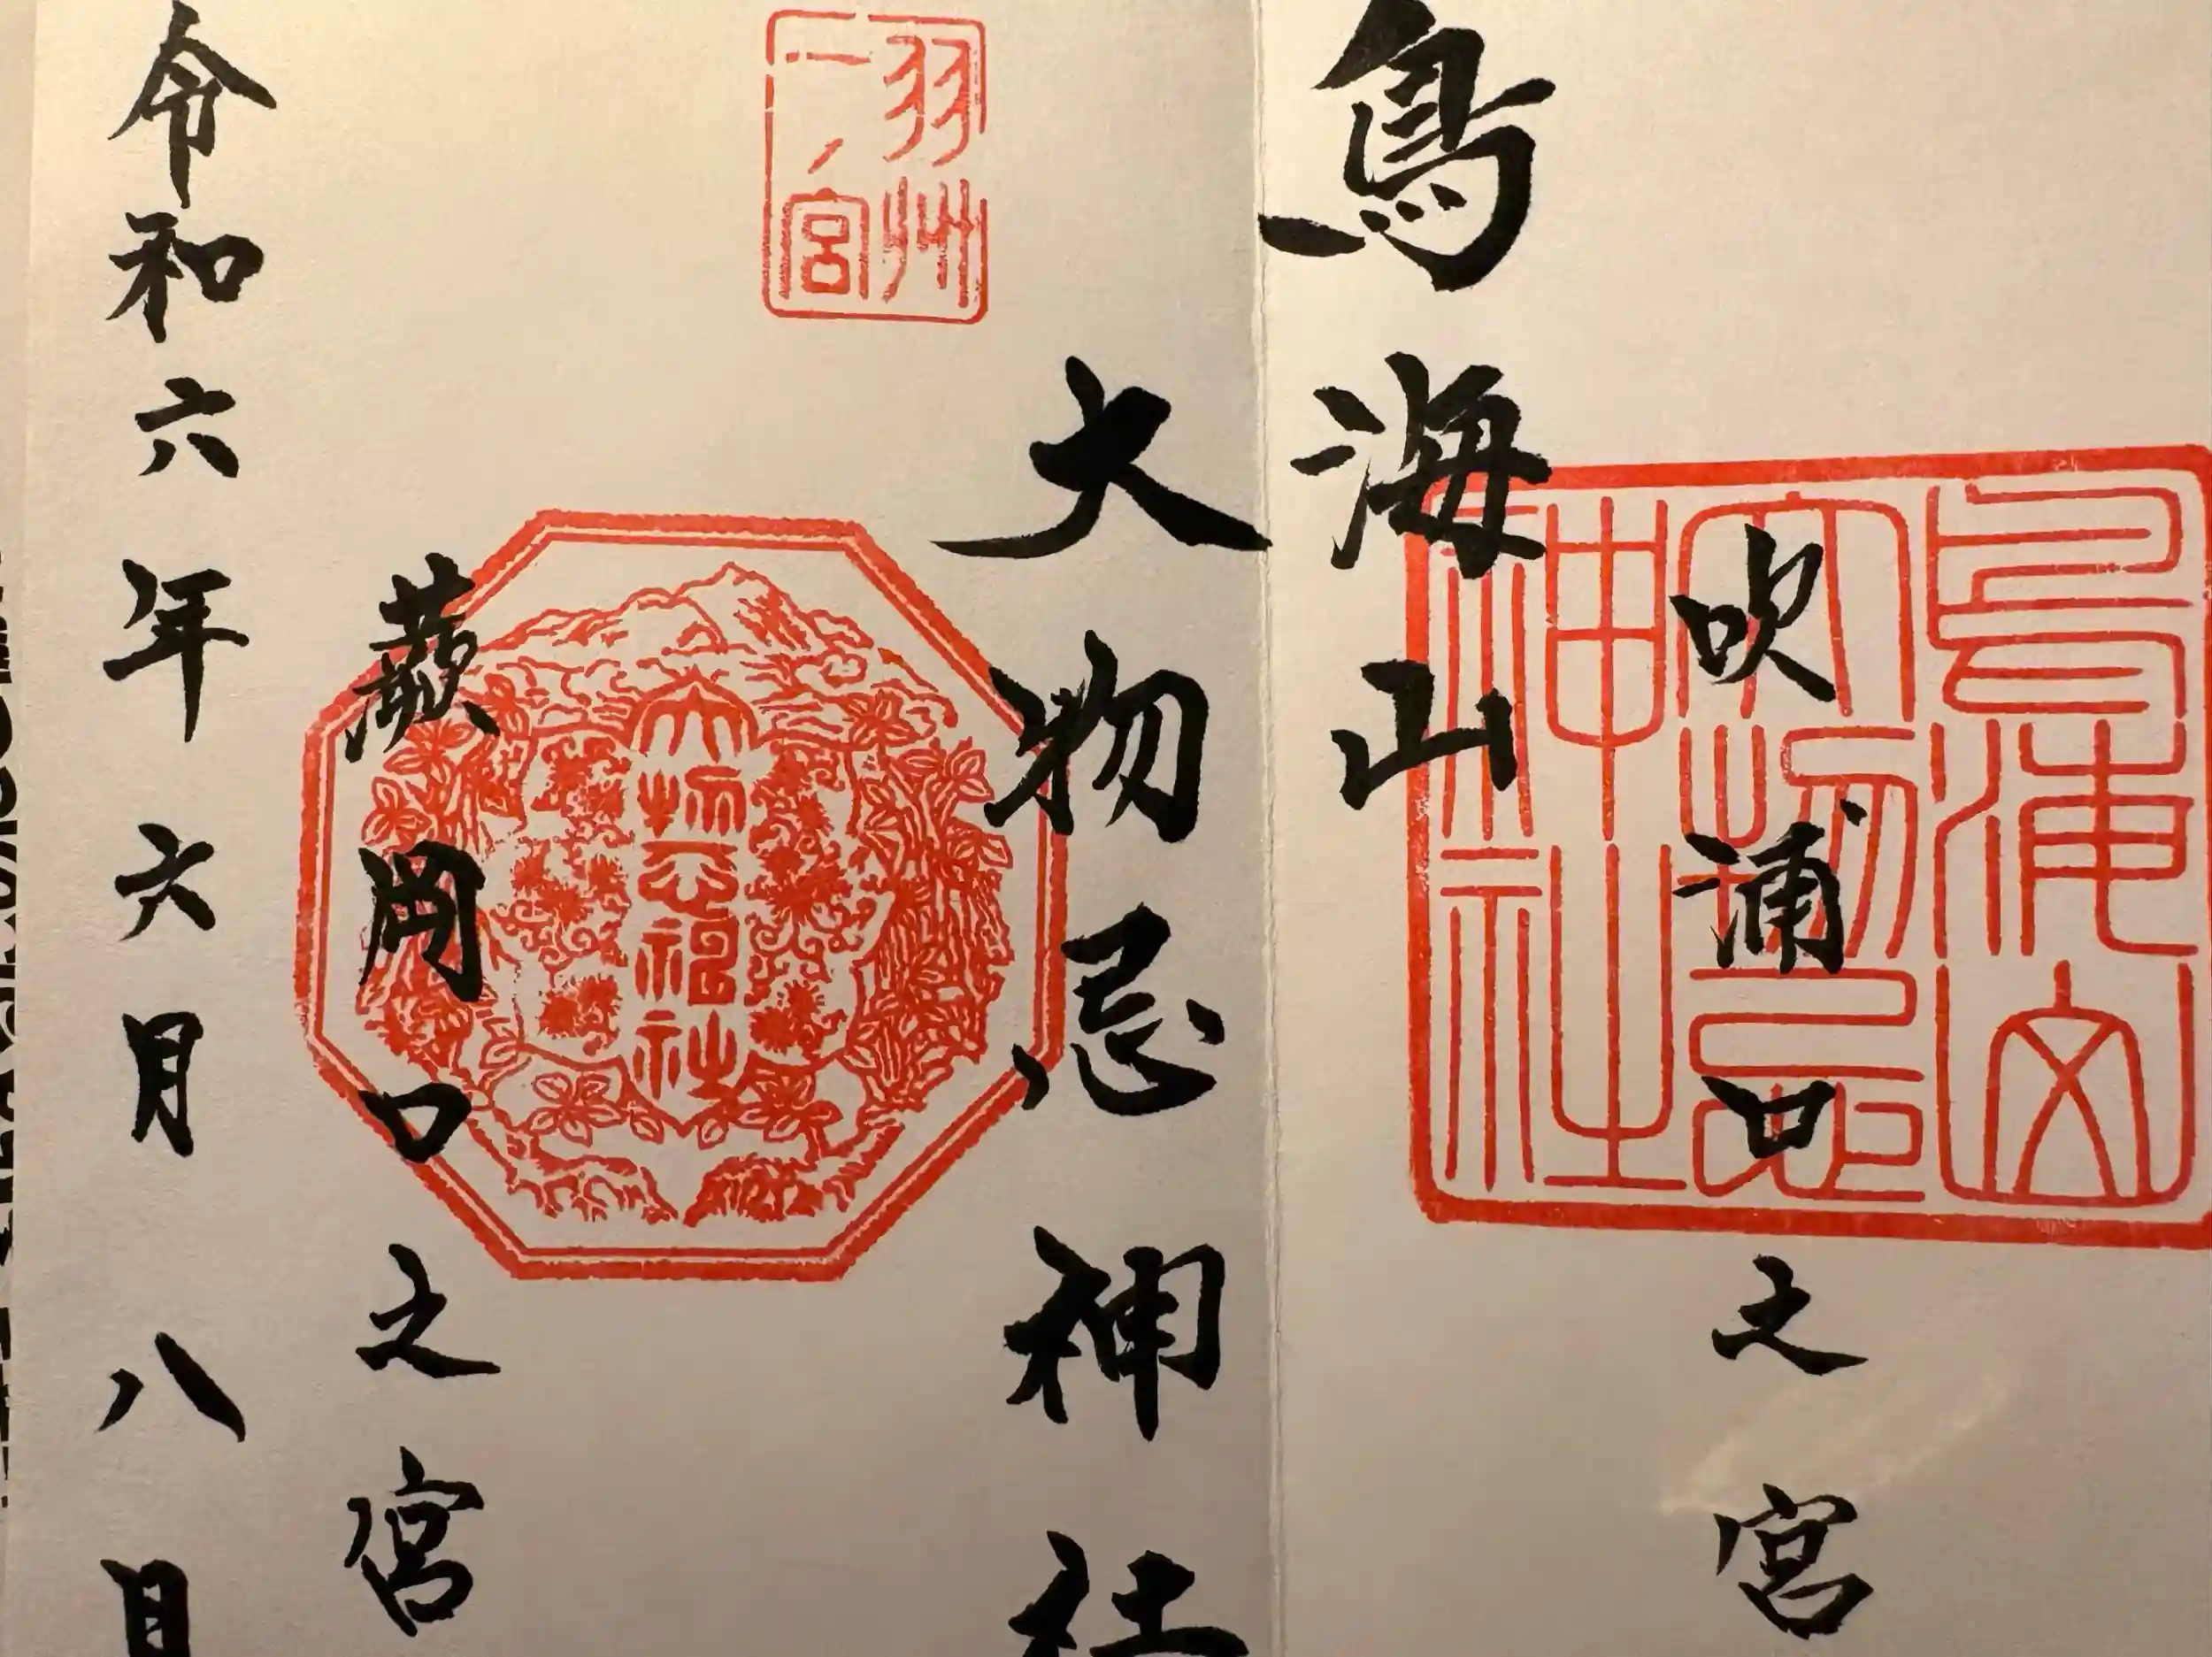 吹浦口之宮
鳥海山
大物忌神社
蕨岡口之宮
令和六年六月八日
羽州
一ノ宮
鳥海山
大物忌
神社
大物忌神社